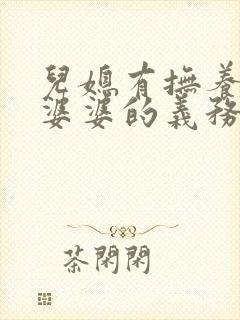 兒媳有撫養
婆婆的義務
茶閑閑